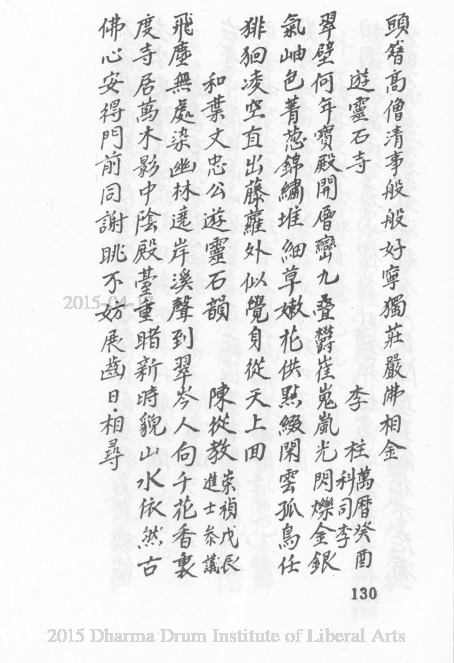 頭簪高僧清事般般好寧獨莊嚴佛相金
遊靈石寺 李柱 萬曆癸酉科司李
翠壁何年寶殿開層巒九叠欝崔嵬嵐光閃爍金銀
氣岫色菁葱錦繡堆細草嫩花供點綴閑雲孤鳥任
徘徊凌空直出藤蘿外似覺身從天上回
和葉文忠公遊靈石韻 陳從教 崇禎戊辰進士叅議
飛塵無處染幽林遶岸溪聲到翠岑人向千花香裏
度寺居萬木影中陰殿臺重睹新時貌山水依然古
佛心安得門前同謝眺不妨展齒日相尋
130
2015 Dharma Drum Institute of Liberal Arts